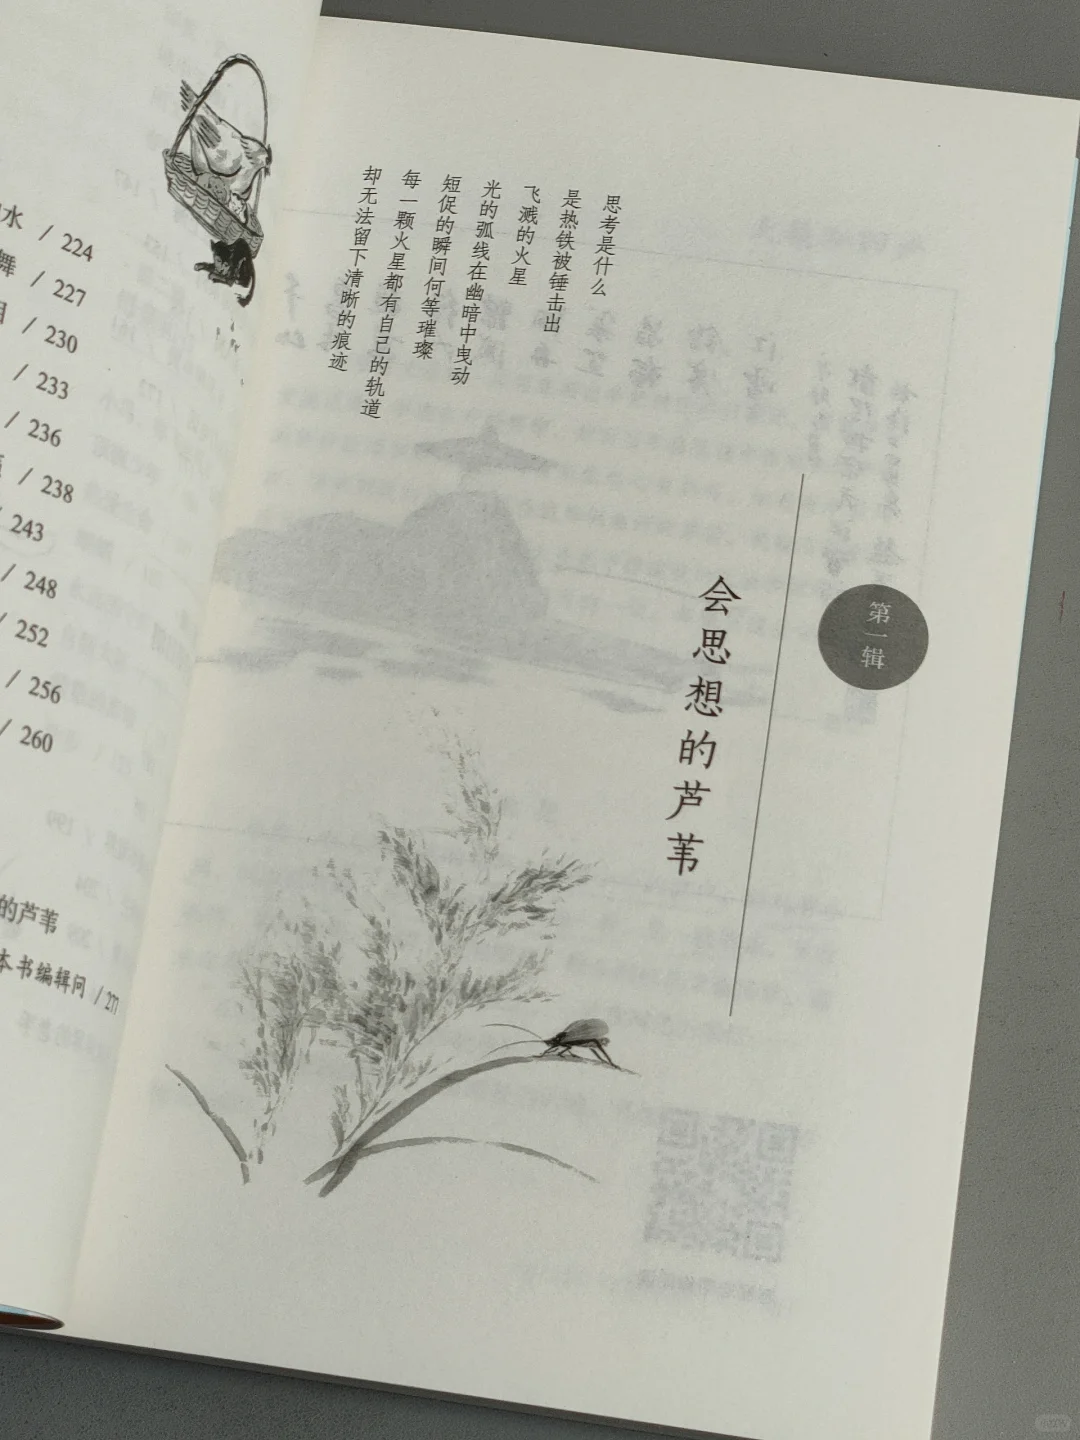 水 / 224
舞 / 227
/ 230
/ 233
/ 236
/ 238
/ 243
/ 248
/ 252
/ 256
/ 260
的芦苇
本书编辑问 / 271
思考是什么
是热铁被锤击出
飞溅的火星
光的弧线在幽暗中曳动
短促的瞬间何等璀璨
每一颗火星都有自己的轨道
却无法留下清晰的痕迹
第一辑
会思想的芦苇
小红书